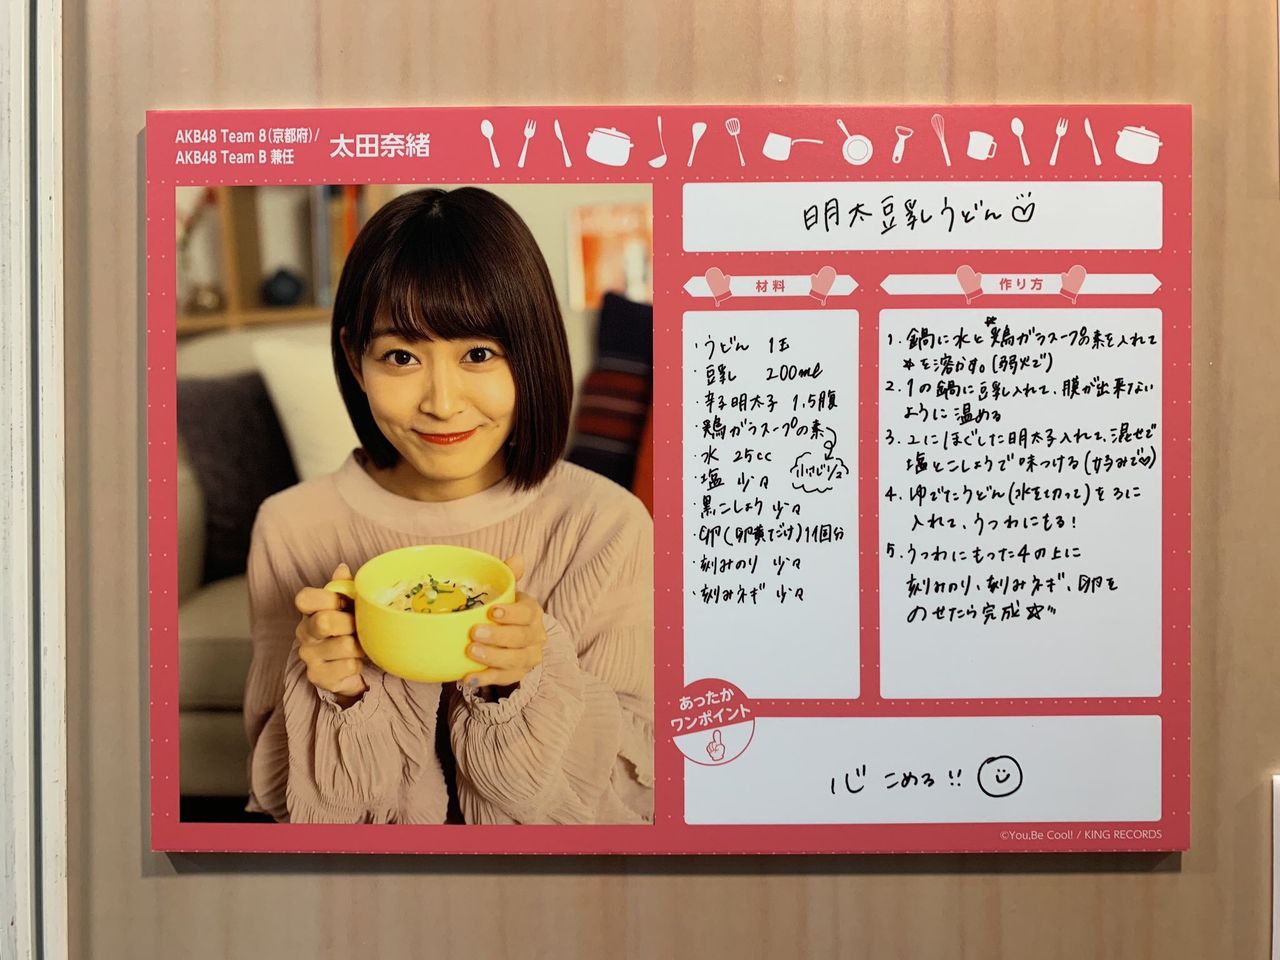 AKB48 Team 8(京都府)/
AKB48 Team B 兼任
太田奈緒
明太豆乳うどん♡
材料
・うどん 1玉
・豆乳 200ml
・辛子明太子 1.5腹
・鶏ガラスープの素
・水 25cc
小さじ1/2
・塩 少々
・黒こしょう 少々
・卵(卵黄だけ)1個分
・刻みのり 少々
・刻みネギ 少々
作り方
1. 鍋に水と*鶏ガラスープの素を入れて
*を溶かす。(弱火で)
2. 1の鍋に豆乳入れて、膜が出来ない
ように温める
3. 2にほぐした明太子入れて、混ぜて
塩とこしょうで味つける(好みで♡)
4. ゆでたうどん(水を切って)を3に
入れて、うつわにもる!
5. うつわにもった4の上に
刻みのり、刻みネギ、卵を
のせたら完成☆
あったか
ワンポイント
心こめる!!
©You,Be Cool! / KING RECORDS